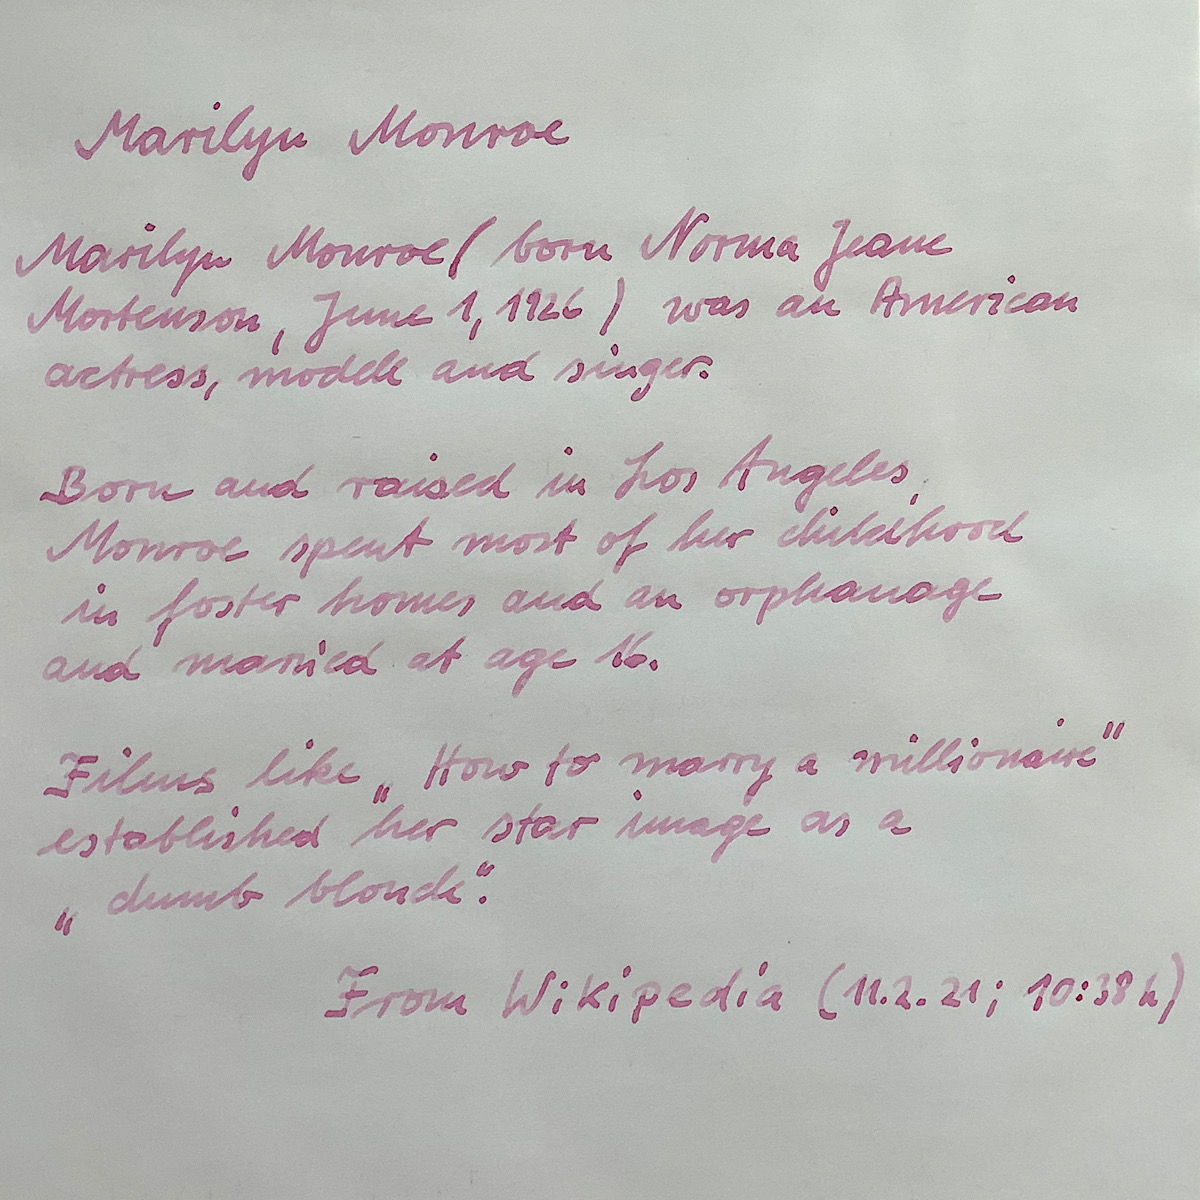 Marilyn Monroe
Marilyn Monroe (born Norma Jeane
Mortenson, June 1, 1926) was an American
actress, modell and singer.
Born and raised in Los Angeles,
Monroe spent most of her childhood
in foster homes and an orphanage
and married at age 16.
Films like „How to marry a millionaire“
established her star image as a
„dumb blonde“.
From Wikipedia (11.2.21; 10:38 h)